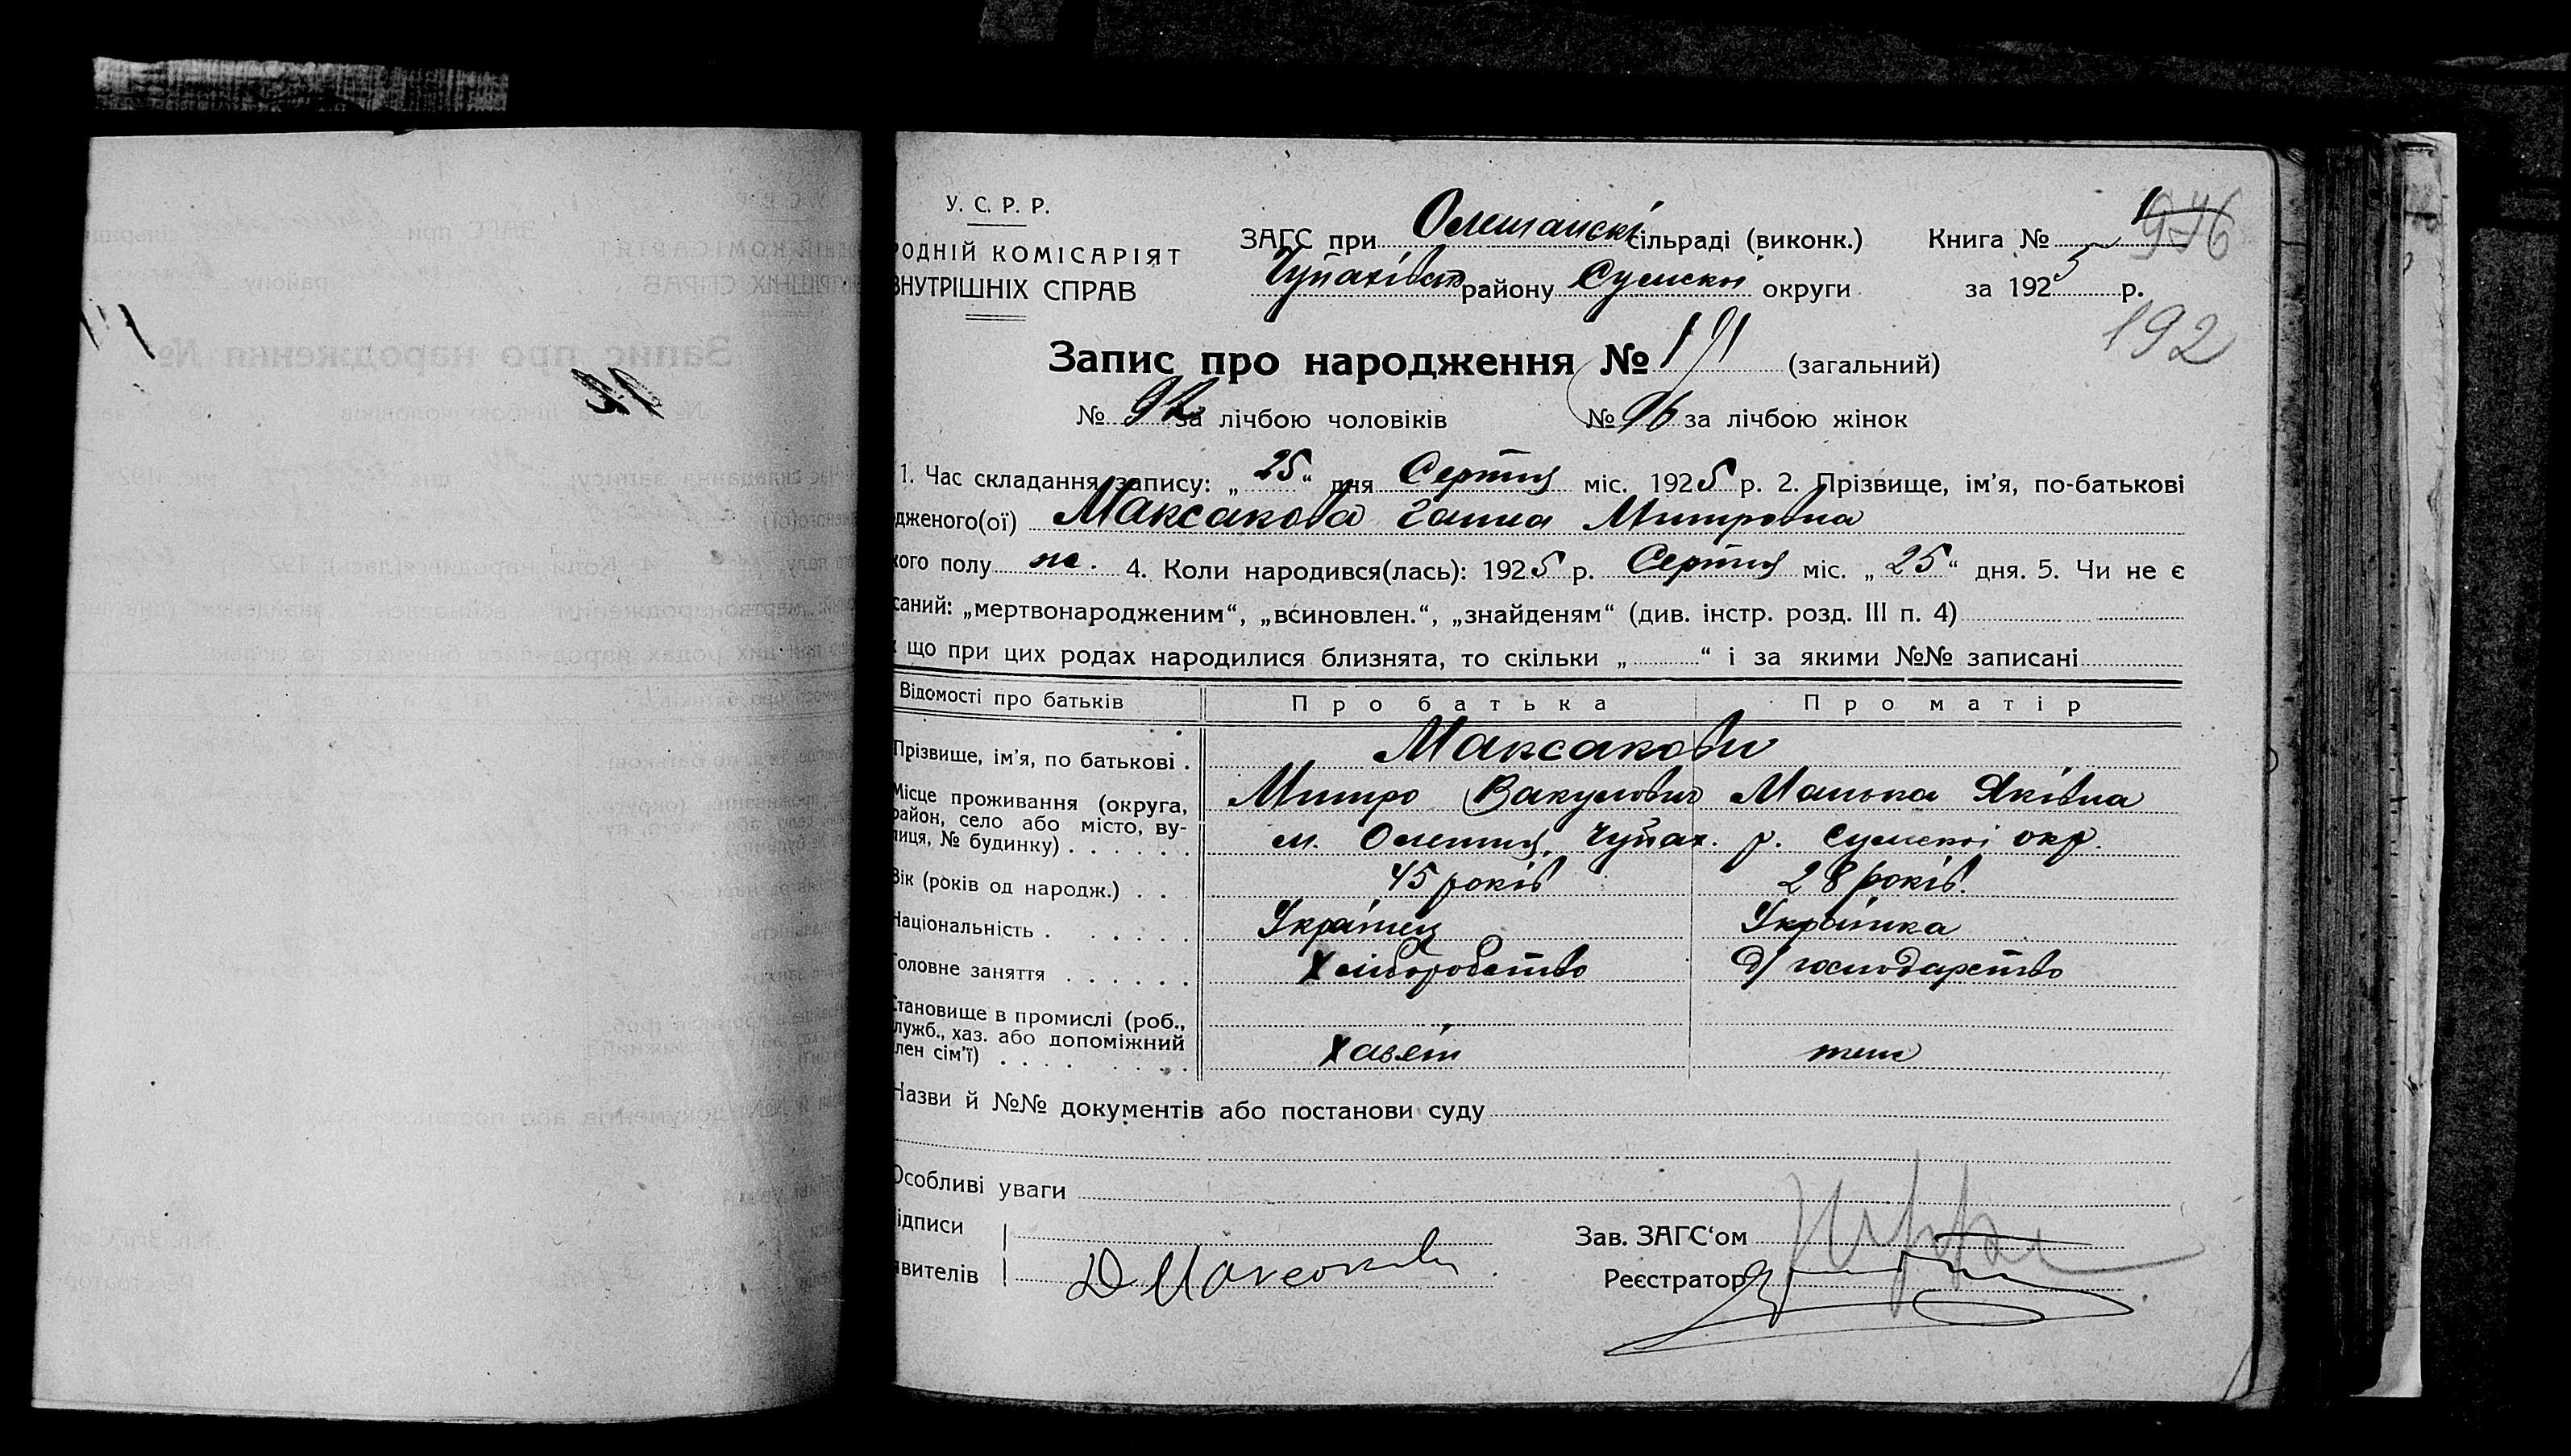 У. С. Р. Р.
РОДНІЙ КОМІСАРІЯТ
ВНУТРІШНІХ СПРАВ
ЗАГС при Олешанскі сільраді (виконк.)
Чупахівськ району Сумскої округи
Книга № 1 976
за 1925 р.
192
Запис про народження № 191 (загальний)
№ за лічбою чоловіків № 96 за лічбою жінок
1. Час складання запису: „25“ дня Серпня міс. 1925 р. 2. Прізвище, ім'я, по-батькові
дженого(ої) Максакова Ганна Митровна
кого полу ж. 4. Коли народився(лась): 1925 р. Серпня міс. „25“ дня. 5. Чи не є
саний: „мертвонародженим“, „всиновлен.“, „знайденям“ (див. інстр. розд. III п. 4)
що при цих родах народилися близнята, то скільки „ “ і за якими №№ записані
Відомості про батьків Про батька Про матір
Прізвище, ім'я, по батькові . Максакови
Місце проживання (округа, район, село або місто, вулиця, № будинку) . . . . . .
Митро Вакулович Манька Яківна
м. Олешня, Чупах. р. Сумскої окр.
Вік (років од народж.) . . 45 років 28 років.
Національність . . . . . Українец Українка
Головне заняття . . . . . . Хліборобство д/господарство
Становище в промислі (роб.,
служб., хаз. або допоміжний
член сім'ї) . . . . . . . . Хазяїн
Назви й №№ документів або постанови суду
Особливі уваги
ідписи
явителів Д Максаков
Зав. ЗАГС'ом
Реєстратор